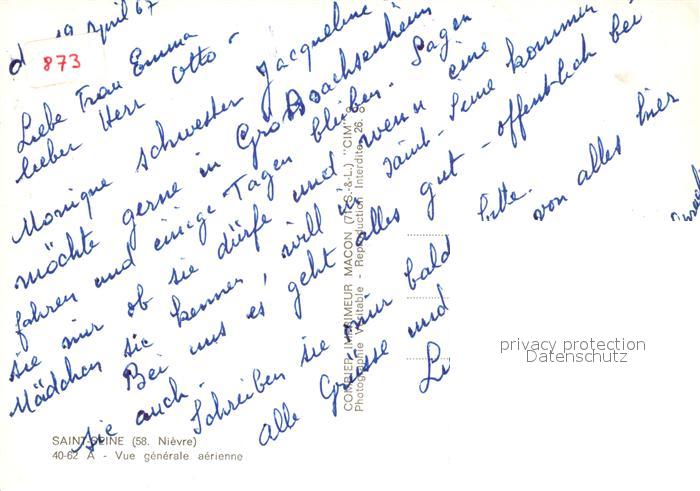 d 19 April 67
873
Liebe Frau Emma
lieber Herr Otto -
Monique schwester Jacqueline
möchte gerne in Grossachsenheim
fahren und einige Tagen bleiben. Sagen
sie mir ob sie dürfe und wenn eine
Mädchen sie kennen, will in Saint-Seine kommen
Bei uns es geht alles gut - offentlich bei
sie auch.
Schreiben sie mir bald bitte.
alle Grüsse und von alles hier
SAINT-SEINE (58. Nièvre)
40-62 A - Vue générale aérienne
COMBIER IMPRIMEUR MACON (71.S.-&-L.) "CIM"
Photographie Véritable - Reproduction Interdite
privacy protection
Datenschutz